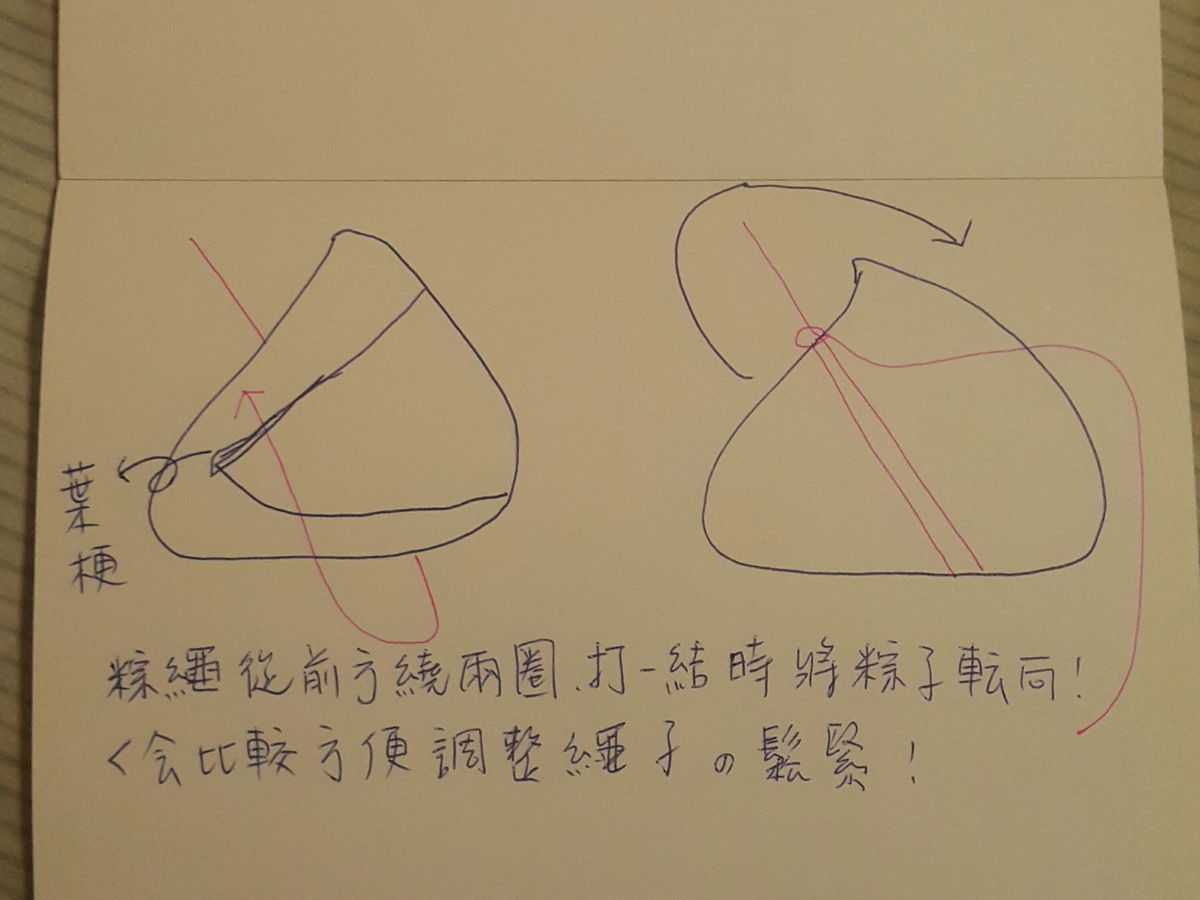 葉梗
粽繩從前方繞兩圈、打一結時將粽子転向!
<会比較方便調整繩子の鬆緊!